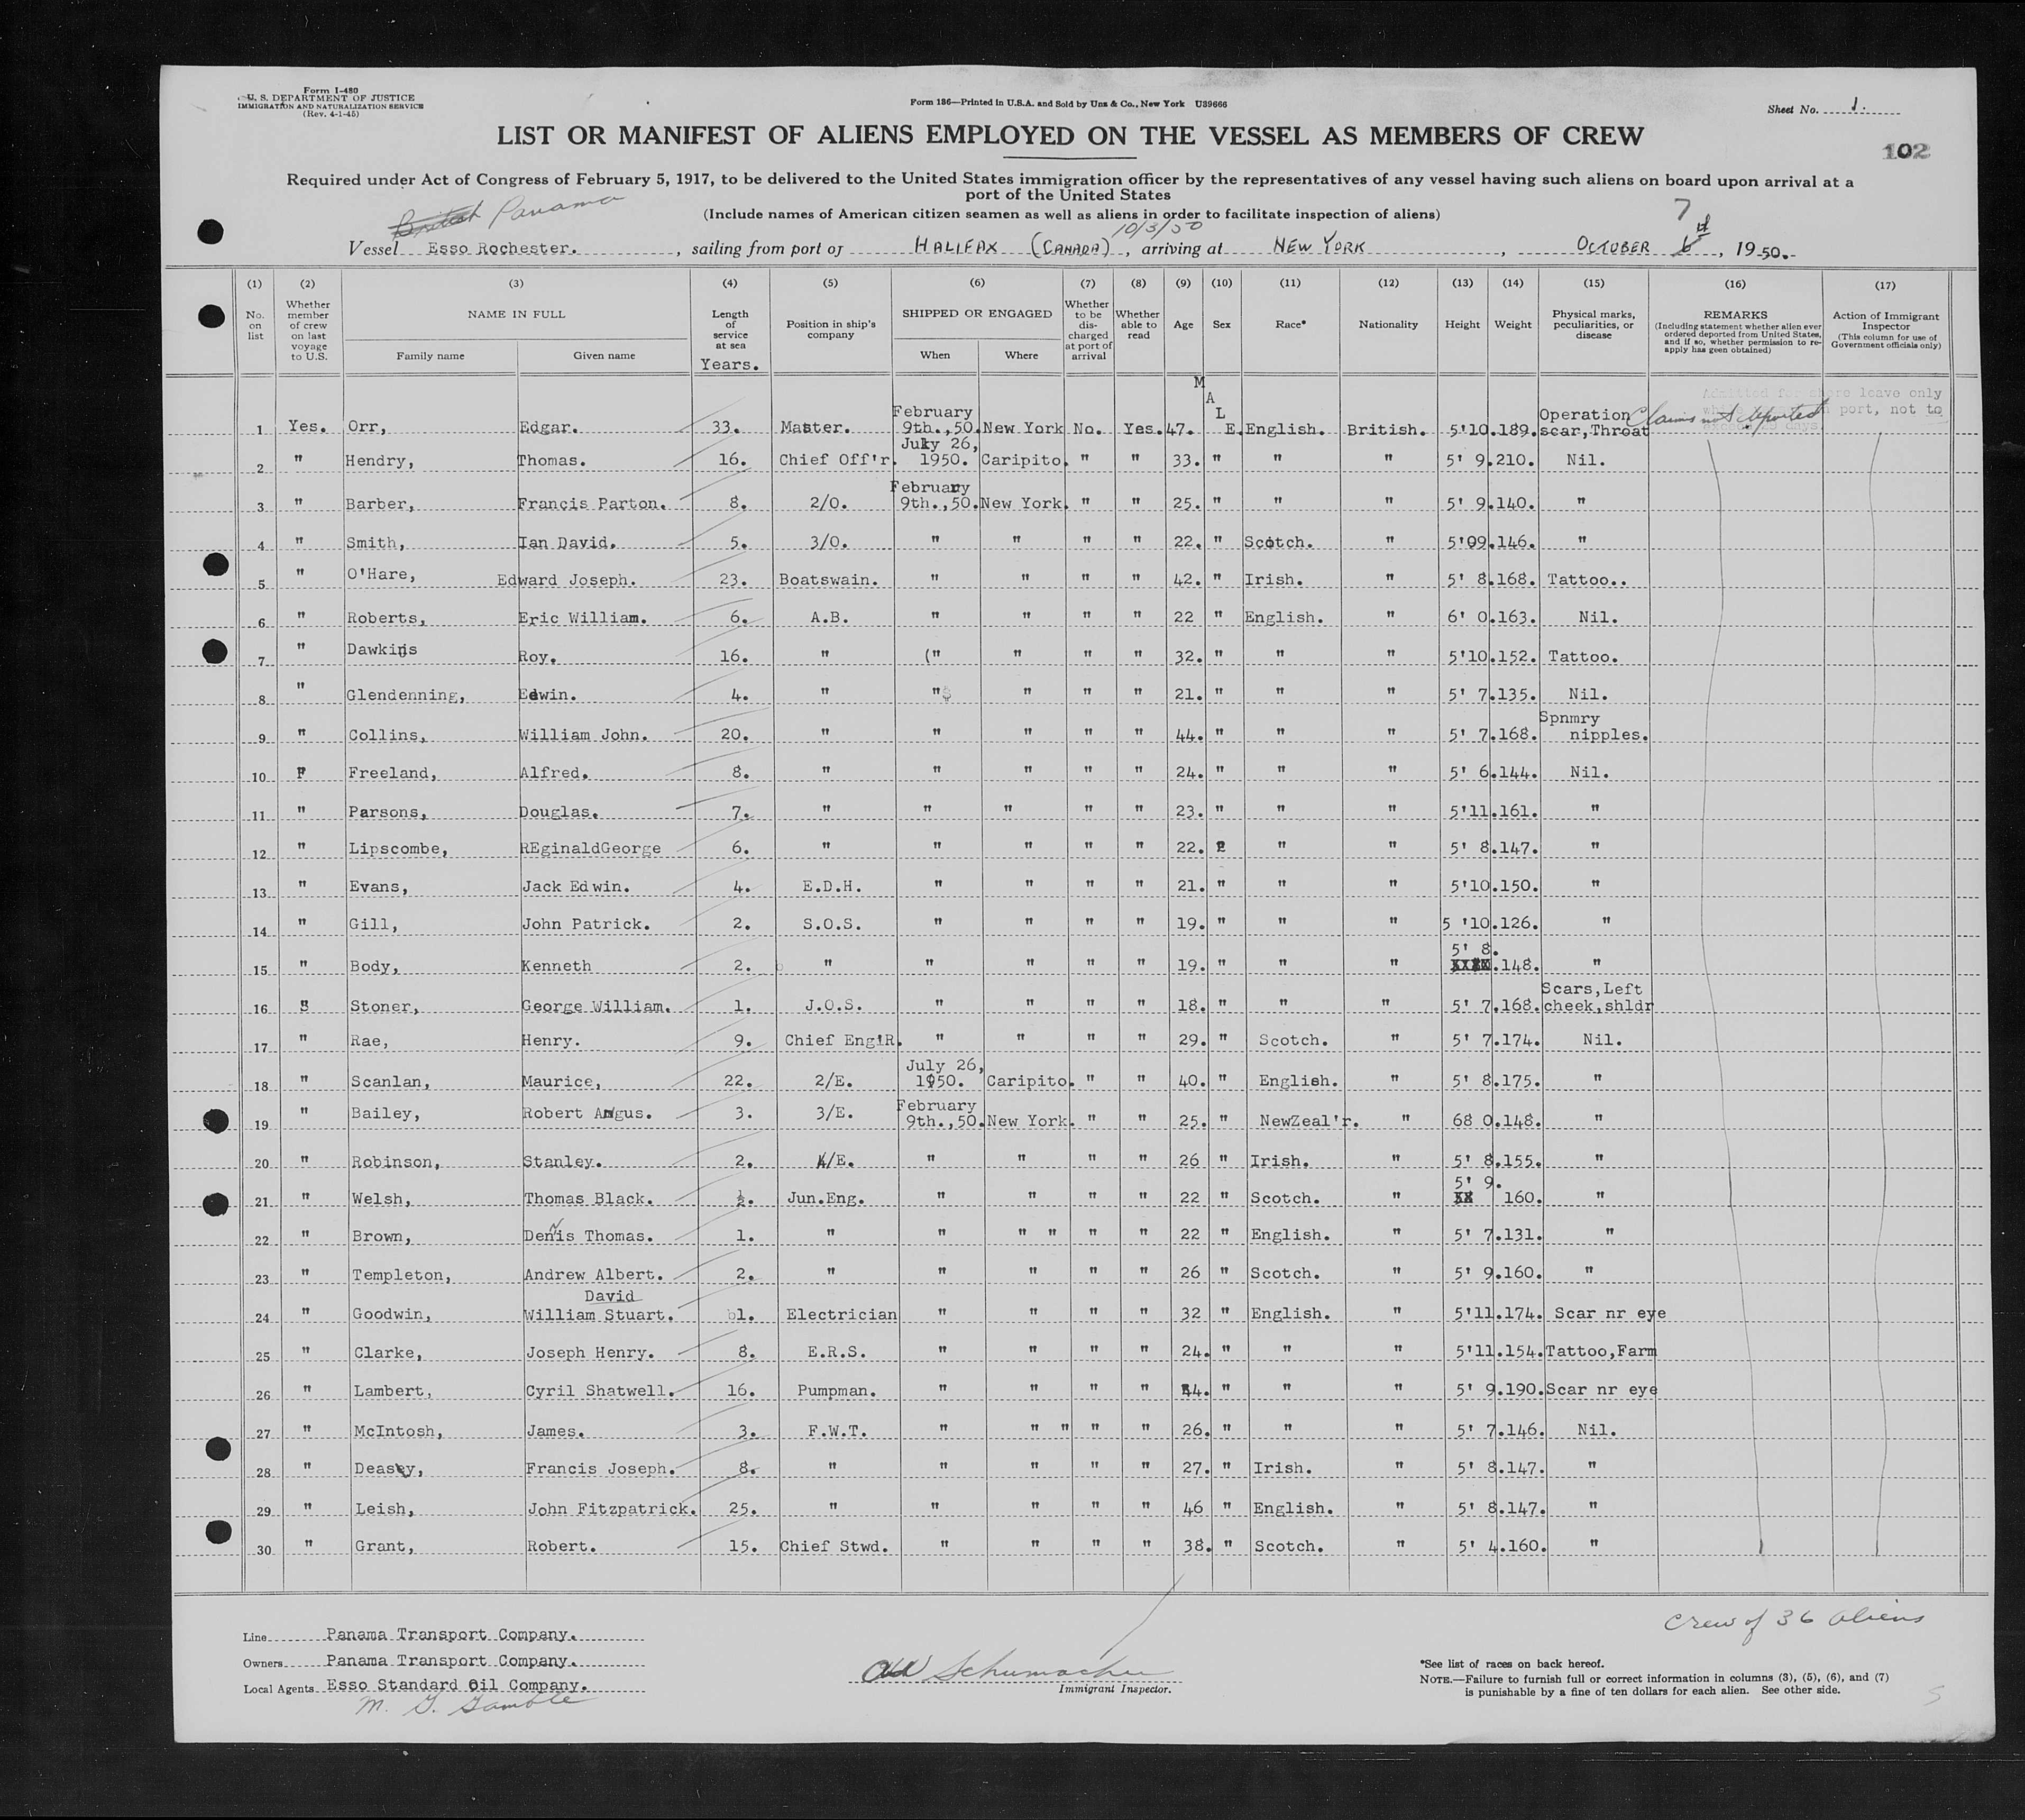 Form I-480
U. S. DEPARTMENT OF JUSTICE
IMMIGRATION AND NATURALIZATION SERVICE
(Rev. 4-1-45)
Form 186—Printed in U.S.A. and Sold by Unz & Co., New York U39666
Sheet No. 1.
LIST OR MANIFEST OF ALIENS EMPLOYED ON THE VESSEL AS MEMBERS OF CREW
102
Required under Act of Congress of February 5, 1917, to be delivered to the United States immigration officer by the representatives of any vessel having such aliens on board upon arrival at a
port of the United States
(Include names of American citizen seamen as well as aliens in order to facilitate inspection of aliens)
British Panama
10/3/50
7
Vessel Esso Rochester. , sailing from port of HALIFAX (CANADA) , arriving at NEW YORK , OCTOBER 6 , 1950.
(1) (2) (3) (4) (5) (6) (7) (8) (9) (10) (11) (12) (13) (14) (15) (16) (17)
No. on list
Whether member of crew on last voyage to U.S.
NAME IN FULL
Family name Given name
Length of service at sea
Years.
Position in ship's company
SHIPPED OR ENGAGED
When Where
Whether to be discharged at port of arrival
Whether able to read
Age
Sex
Race*
Nationality
Height
Weight
Physical marks, peculiarities, or disease
REMARKS
(Including statement whether alien ever ordered deported from United States, and if so, whether permission to re-apply has geen obtained)
Action of Immigrant Inspector
(This column for use of Government officials only)
Admitted for shore leave only
port, not to
days.
Claims not deported
1 Yes. Orr, Edgar. 33. Master. February 9th.,50. New York No. Yes. 47. MALE. English. British. 5'10. 189. Operation scar,Throat
2 " Hendry, Thomas. 16. Chief Off'r. July 26, 1950. Caripito. " " 33. " " " 5' 9. 210. Nil.
3 " Barber, Francis Parton. 8. 2/O. February 9th.,50. New York. " " 25. " " " 5' 9. 140. "
4 " Smith, Ian David. 5. 3/O. " " " " 22. " Scotch. " 5'09. 146. "
5 " O'Hare, Edward Joseph. 23. Boatswain. " " " " 42. " Irish. " 5' 8. 168. Tattoo..
6 " Roberts, Eric William. 6. A.B. " " " " 22 " English. " 6' 0. 163. Nil.
7 " Dawkins Roy. 16. " (" " " " 32. " " " 5'10. 152. Tattoo.
8 " Glendenning, Edwin. 4. " " " " " 21. " " " 5' 7. 135. Nil.
9 " Collins, William John. 20. " " " " " 44. " " " 5' 7. 168. Spnmry nipples.
10 " Freeland, Alfred. 8. " " " " " 24. " " " 5' 6. 144. Nil.
11 " Parsons, Douglas. 7. " " " " " 23. " " " 5'11. 161. "
12 " Lipscombe, REginaldGeorge 6. " " " " " 22. " " " 5' 8. 147. "
13 " Evans, Jack Edwin. 4. E.D.H. " " " " 21. " " " 5'10. 150. "
14 " Gill, John Patrick. 2. S.O.S. " " " " 19. " " " 5 '10. 126. "
15 " Body, Kenneth 2. " " " " " 19. " " " 5' 8. 148. "
16 " Stoner, George William. 1. J.O.S. " " " " 18. " " " 5' 7. 168. Scars,Left cheek,shldr
17 " Rae, Henry. 9. Chief Eng'R. " " " " 29. " Scotch. " 5' 7. 174. Nil.
18 " Scanlan, Maurice, 22. 2/E. July 26, 1950. Caripito. " " 40. " English. " 5' 8. 175. "
19 " Bailey, Robert Angus. 3. 3/E. February 9th.,50. New York. " " 25. " NewZeal'r. " 68 0. 148. "
20 " Robinson, Stanley. 2. 4/E. " " " " 26 " Irish. " 5' 8. 155. "
21 " Welsh, Thomas Black. ½. Jun.Eng. " " " " 22 " Scotch. " 5' 9. 160. "
22 " Brown, Dennis Thomas. 1. " " " " " " 22 " English. " 5' 7. 131. "
23 " Templeton, Andrew Albert. 2. " " " " " 26 " Scotch. " 5' 9. 160. "
24 " Goodwin, David William Stuart. 1. Electrician " " " " 32 " English. " 5'11. 174. Scar nr eye
25 " Clarke, Joseph Henry. 8. E.R.S. " " " " 24. " " " 5'11. 154. Tattoo,Farm
26 " Lambert, Cyril Shatwell. 16. Pumpman. " " " " 44. " " " 5' 9. 190. Scar nr eye
27 " McIntosh, James. 3. F.W.T. " " " " " 26. " " " 5' 7. 146. Nil.
28 " Deasy, Francis Joseph. 8. " " " " " 27. " Irish. " 5' 8. 147. "
29 " Leish, John Fitzpatrick. 25. " " " " " 46 " English. " 5' 8. 147. "
30 " Grant, Robert. 15. Chief Stwd. " " " " 38. " Scotch. " 5' 4. 160. "
Crew of 36 aliens
Line Panama Transport Company.
Owners Panama Transport Company.
Local Agents Esso Standard Oil Company.
M. G. Gamble
Schumacher
Immigrant Inspector.
*See list of races on back hereof.
NOTE.—Failure to furnish full or correct information in columns (3), (5), (6), and (7)
is punishable by a fine of ten dollars for each alien. See other side.
5